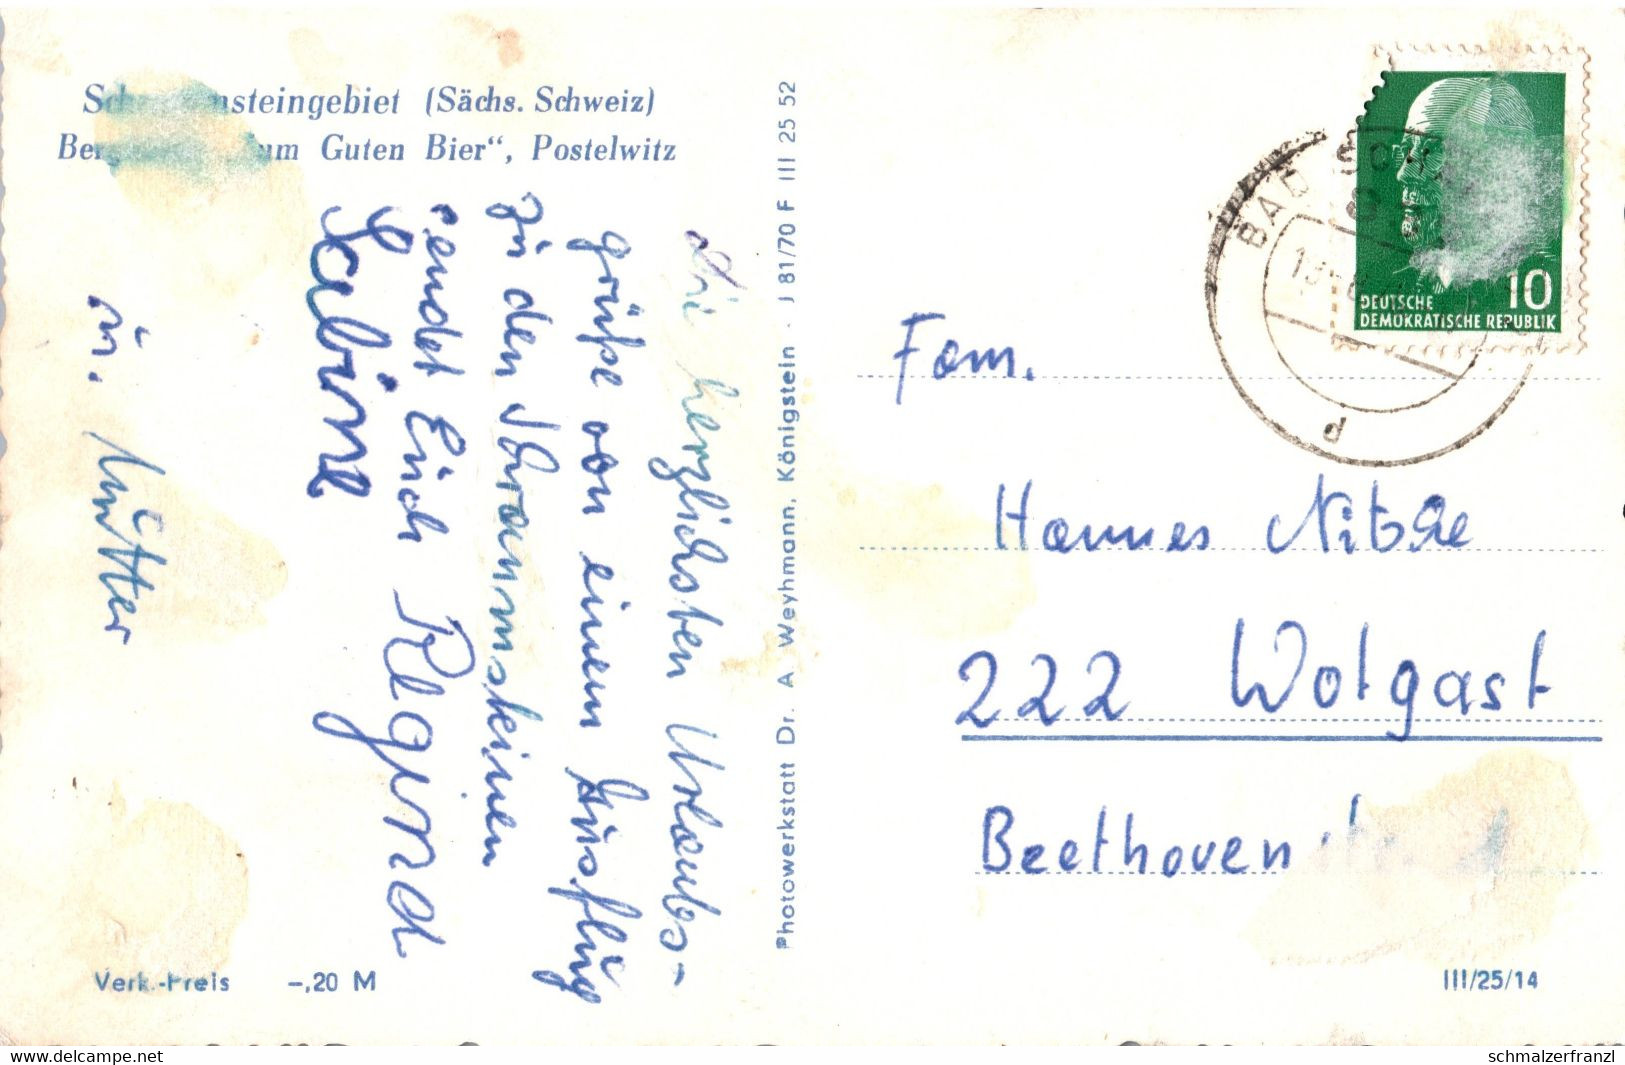 Sch steingebiet (Sächs. Schweiz)
Berg um Guten Bier“, Postelwitz
die herzlichsten Urlaubs-
grüße von einem Ausflug
zu den Schrammsteinen
sendet Euch Regina
Sabine
u. Mutter
Photowerkstatt Dr. A. Weyhmann, Königstein · J 81/70 F III 25 52
Verk.-Preis -,20 M
BAD SCH
d
10
DEUTSCHE
DEMOKRATISCHE REPUBLIK
Fam.
Hannes Nitzke
222 Wolgast
Beethovenstr.
III/25/14
www.delcampe.net
schmalzerfranzl